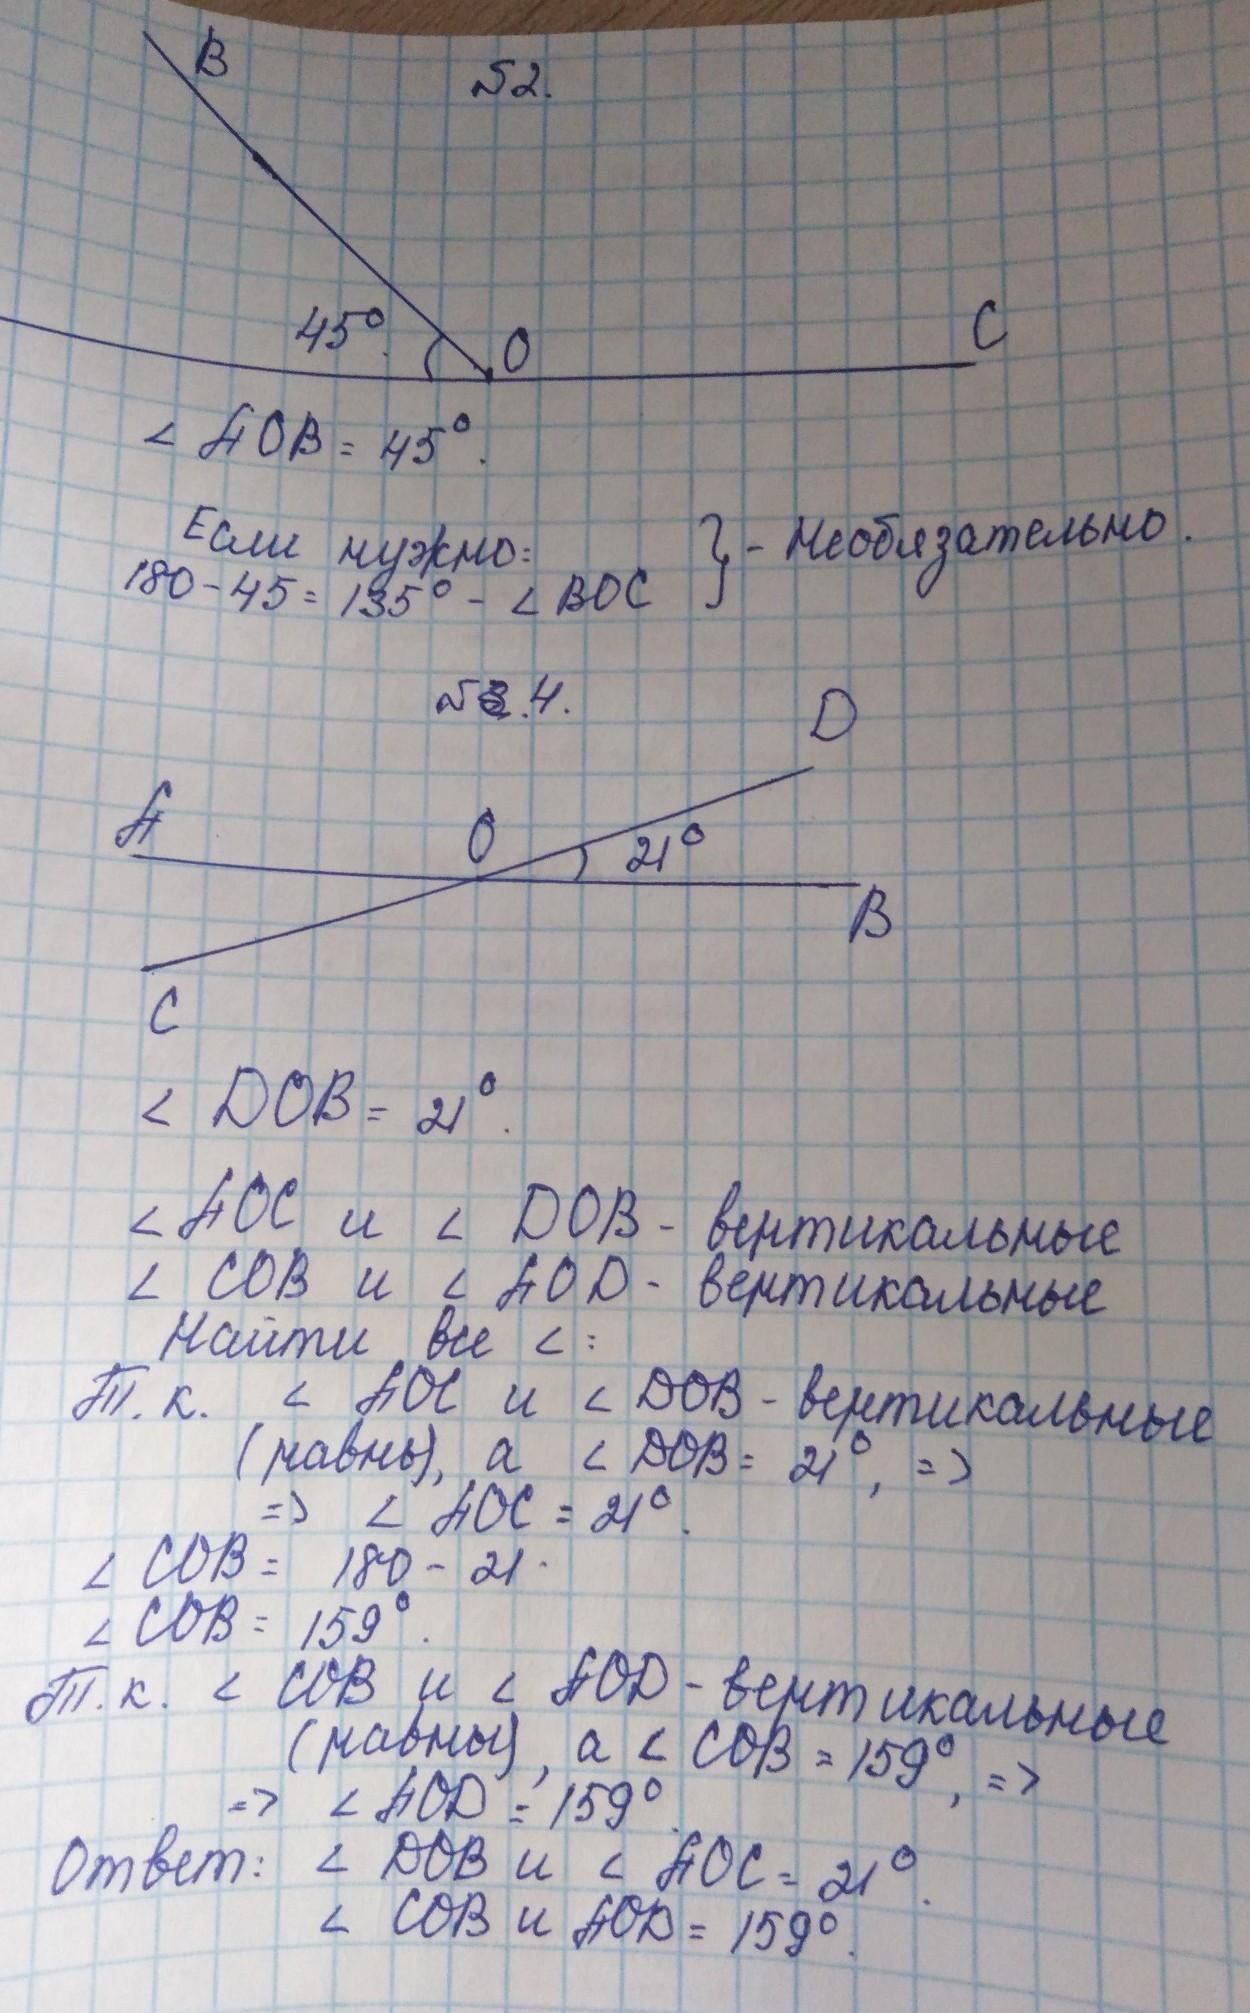 B
№2.
45°
O
C
< AOB = 45°.
Если нужно:
180-45=135° - < BOC
} - Необязательно.
№3.4.
D
A
O
21°
B
C
< DOB = 21°.
< AOC и < DOB - вертикальные
< COB и < AOD - вертикальные
Найти все < :
Т.к. < AOC и < DOB - вертикальные
(равны), а < DOB = 21°, =>
=> < AOC = 21°.
< COB = 180 - 21.
< COB = 159°.
Т.к. < COB и < AOD - вертикальные
(равны), а < COB = 159°, =>
=> < AOD = 159°.
Ответ: < DOB и < AOC = 21°.
< COB и AOD = 159°.